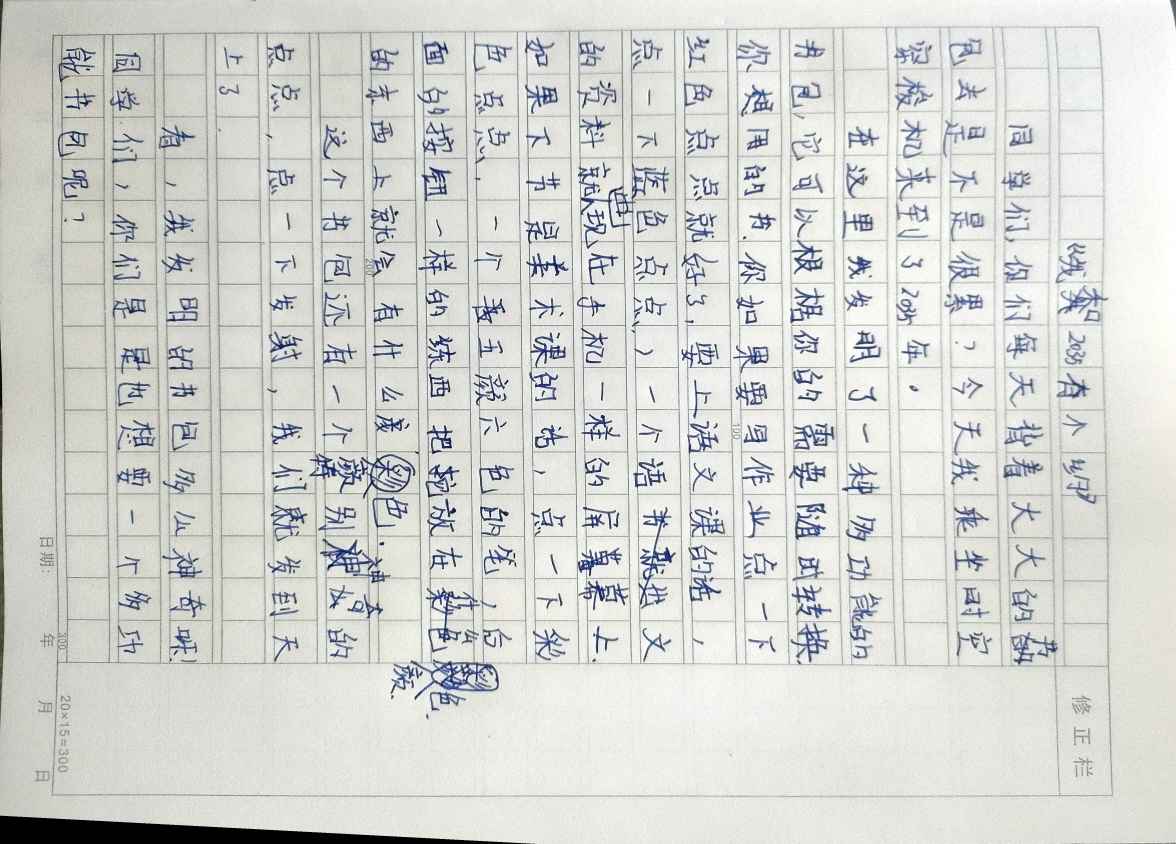 2035 有个
同学们，你们每天背着大大的书
包去是不是很累？今天我乘坐时空
穿梭机来到了2035年。
在这里我发明了一种多功能的
书包，它可以根椐你的需要随时转换.
你想用的书.你如果要写作业点一下
红色点点就好了，要上语文课的话，
点一下蓝色点点，）一个语文
的资料就出现在手机一样的屏幕上.
如果下节是美术课的话，点一下彩
色点点，一个五颜六色的笔，
面的按钮一样的东西把放在
的东西上就会有什么颜色.
这个书包还有一个特别神奇的
点点，点一下发射，我们就发到天
上了.
看，我发明的书包多么神奇呀!
同学们，你们是是也想要一个多功
能书包呢？
修正栏
100
200
300
20×15=300
日期： 年 月 日